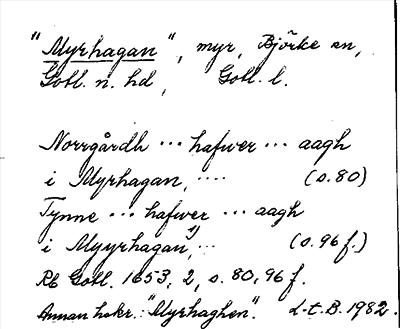 "Myrhagan", myr, Björke sn,
Gotl. n. hd, Gotl. l.
Norrgårdh ... hafwer ... aagh
i Myrhagan, .... (s. 80)
Tynne ... hafwer ... aagh
i Myyrhagan,¹⁾... (s. 96 f.)
Rb Gotl. 1653, 2, s. 80, 96 f.
Annan hskr.: "Myrhaghen". L-t. B. 1982.